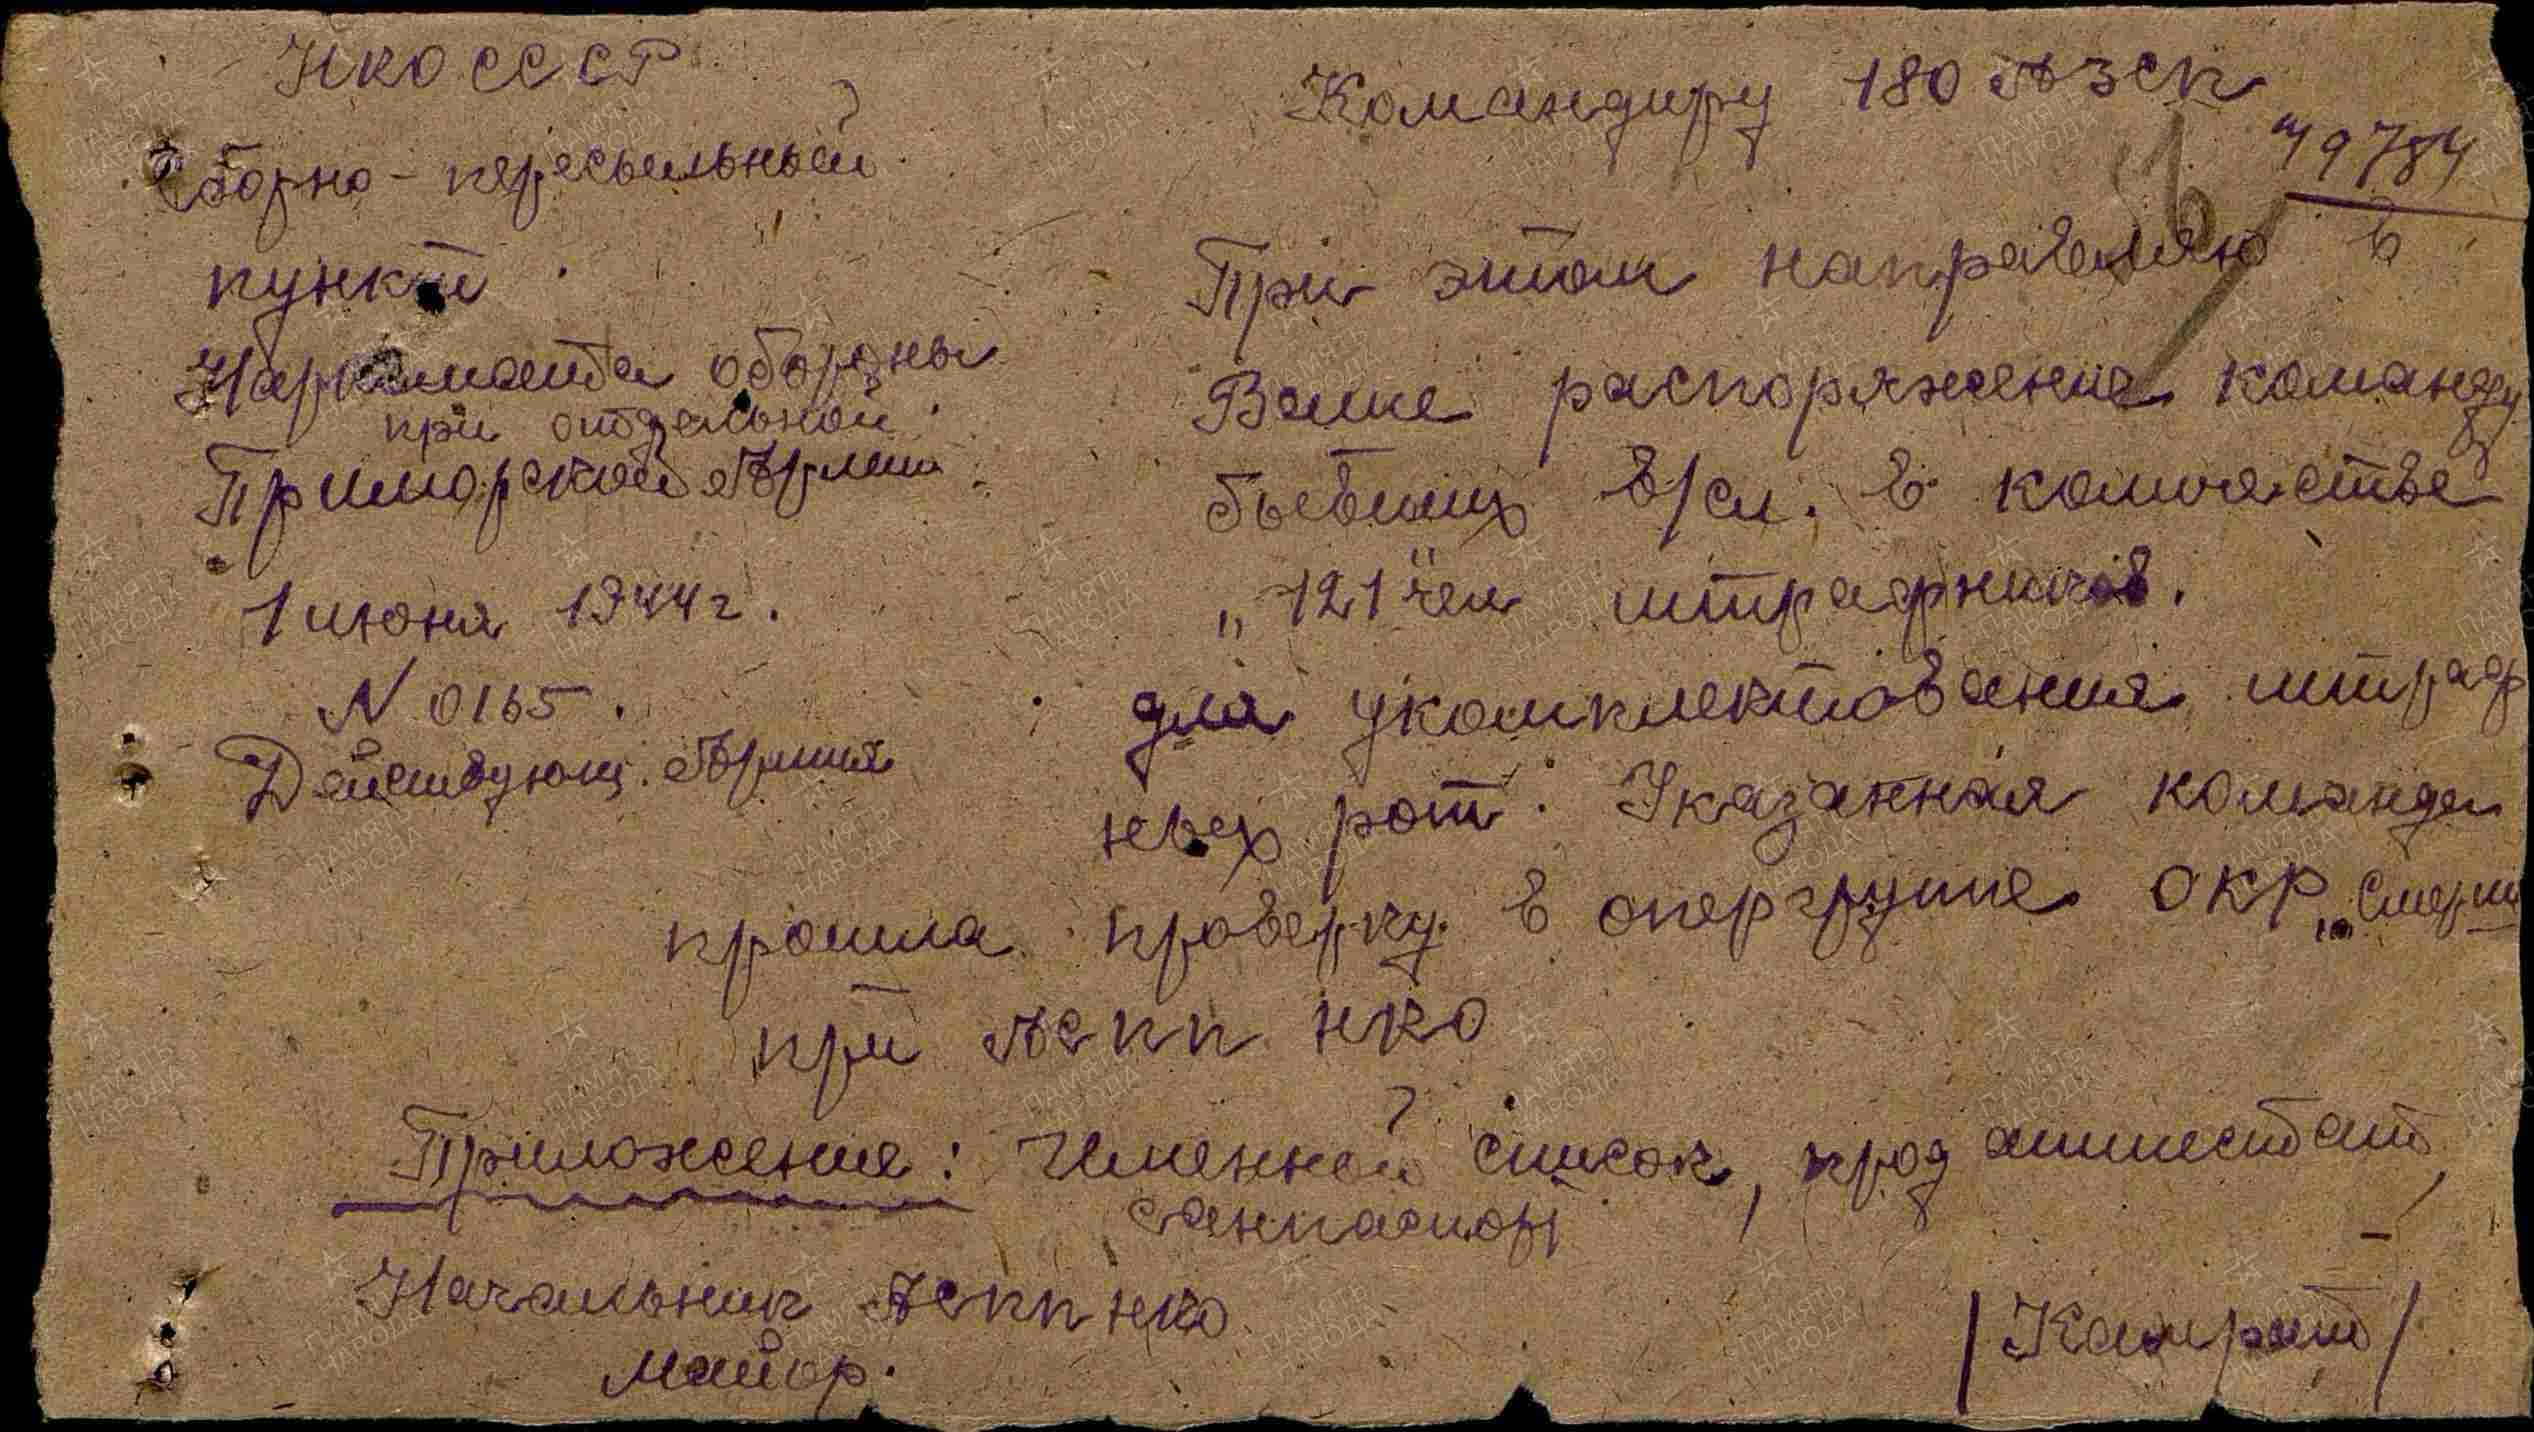 НКО СССР
Сборно-пересыльный
пункт
Наркомата обороны
при отдельной
Приморской Армии
1 июня 1944 г.
N 0165.
Действующ. Армия
Командиру 180 АЗСП
49784
При этом направляю в
Ваше распоряжение команду
бывших в/сл. в количестве
"121" чел штрафников.
для укомплектования штраф
ных рот. Указанная команда
прошла проверку в опергруппе ОКР "Смерш
при АСПП НКО
Приложение: Именной список, прод аттестат,
санпаспорт
Начальник АСПП НКО
майор.